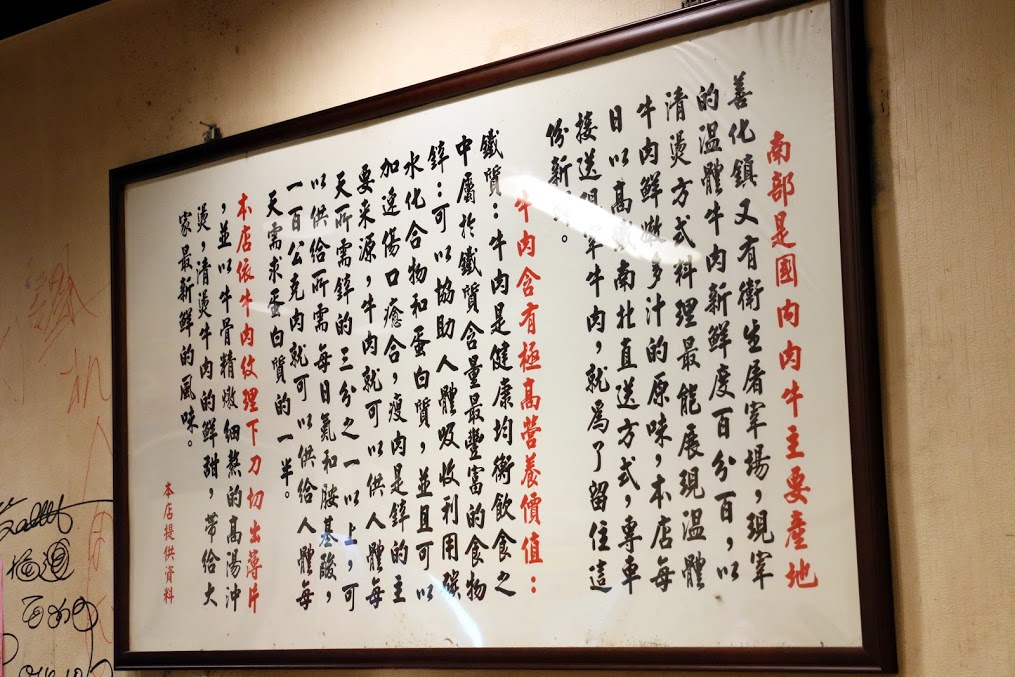 南部是國內肉牛主要產地
善化鎮又有衛生屠宰場，現宰
的溫體牛肉新鮮度百分百，以
清燙方式料理最能展現溫體
牛肉鮮嫩多汁的原味，本店每
日以高 南北直送方式，專車
接送現宰牛肉，就為了留住這
份新 。
牛肉含有極高營養價值：
鐵質：牛肉是健康均衡飲食之
中屬於鐵質含量最豐富的食物
鋅：可以協助人體吸收利用碳
水化合物和蛋白質，並且可以
加速傷口癒合，瘦肉是鋅的主
要來源，牛肉就可以供人體每
天所需鋅的三分之一以上，可
以供給所需每日氮和胺基酸，
一百公克肉就可以供給人體每
天需求蛋白質的一半。
本店依牛肉紋理下刀切出薄片
，並以牛骨精燉細熬的高湯沖
燙，清燙牛肉的鮮甜，帶給大
家最新鮮的風味。
本店提供資料